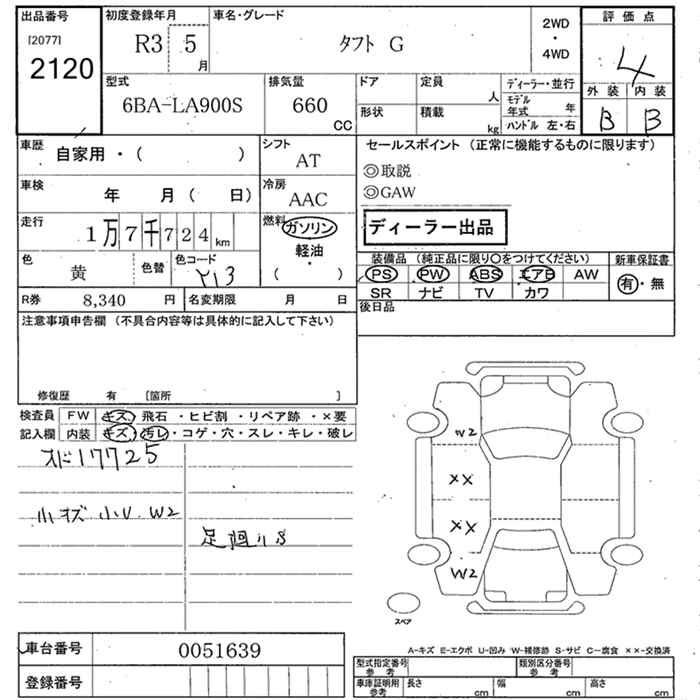 出品番号 初度登録年月 車名・グレード 2WD ・ 4WD 評価点
[2077]
2120 R3 5 月 タフト G 4
型式 排気量 ドア 定員 人 ディーラー・並行 外装 内装
6BA-LA900S 660 CC 形状 積載 kg モデル年式 年 B B
ハンドル 左・右
車歴 自家用・( ) シフト AT セールスポイント (正常に機能するものに限ります)
◎取説
車検 年 月( 日) 冷房 AAC ◎GAW
走行 1万7千724km 燃料 ガソリン ディーラー出品
軽油
( ・ )
色 黄 色替 色コード Y13 装備品(純正品に限り○をつけてください) 新車保証書
PS PW ABS エアB AW 有・無
R券 8,340 円 名変期限 月 日 SR ナビ TV カワ
注意事項申告欄 (不具合内容等は具体的に記入して下さい) 後日品
修復歴 有 [箇所 ]
検査員 FW キズ・飛石・ヒビ割・リペア跡・×要
記入欄 内装 キズ・汚レ・コゲ・穴・スレ・キレ・破レ
W2
17725
××
小キズ 小U W2 ××
足廻りS
W2
スペア
車台番号 0051639 A-キズ E-エクボ U-凹み W-補修跡 S-サビ C-腐食 ××-交換済
登録番号 型式指定番号 参考 類別区分番号 参考
車庫証明用 参考 長さ cm 幅 cm 高さ cm